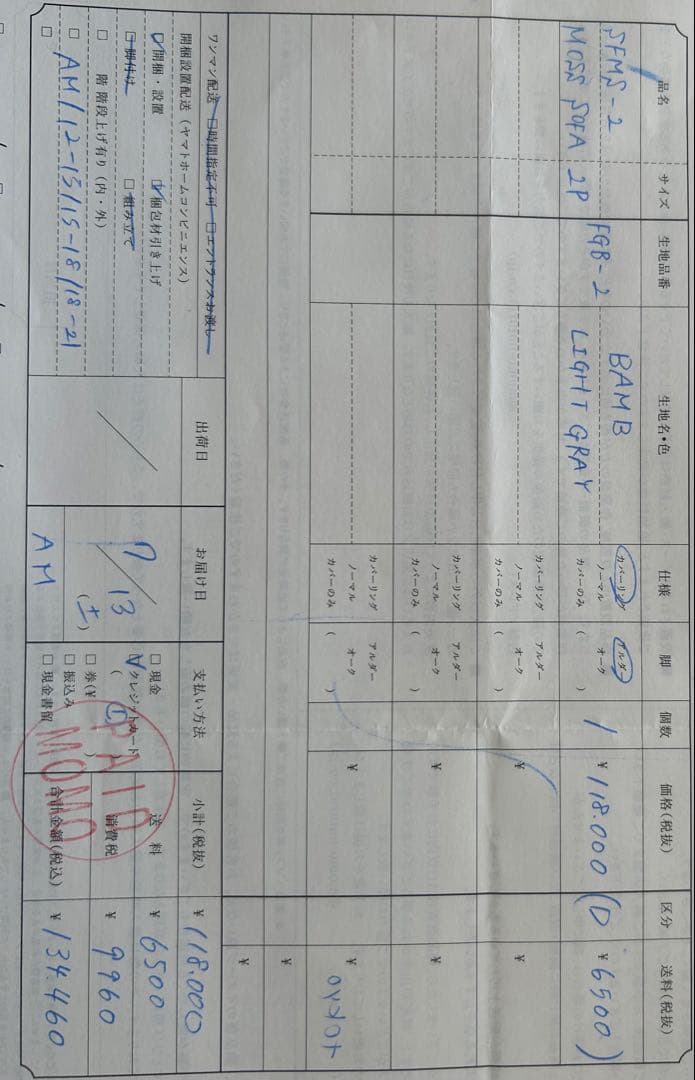 品名 サイズ 生地品番 生地名・色 仕様 脚 個数 価格(税抜) 区分 送料(税抜)
SFMS-2 BAMB カバーリング アルダー
MOSS SOFA 2P FGB-2 LIGHT GRAY ノーマル オーク 1 ¥118.000 (D ¥6500)
カバーのみ ( )
カバーリング アルダー
ノーマル オーク ¥ ¥
カバーのみ ( )
カバーリング アルダー
ノーマル オーク ¥ ¥
カバーのみ ( )
カバーリング アルダー
ノーマル オーク ¥ ¥
カバーのみ ( )
¥
¥
ワンマン配送 □時間指定不可 □エントランスお渡し
開梱設置配送(ヤマトホームコンビニエンス)
☑開梱・設置 ☑梱包材引き上げ
□脚付け □組み立て
□ 階 階段上げ有り(内・外)
□ AM/12-15/15-18/18-21
□
出荷日
/
お届け日
7/13
(土)
AM
支払い方法
□現金
☑クレジットカード
( ① )
□券(¥ )
□振込み
□現金書留
PAID
MOMO
小計(税抜) ¥118.000
送料 ¥6500
消費税 ¥9960
合計金額(税込) ¥134.460